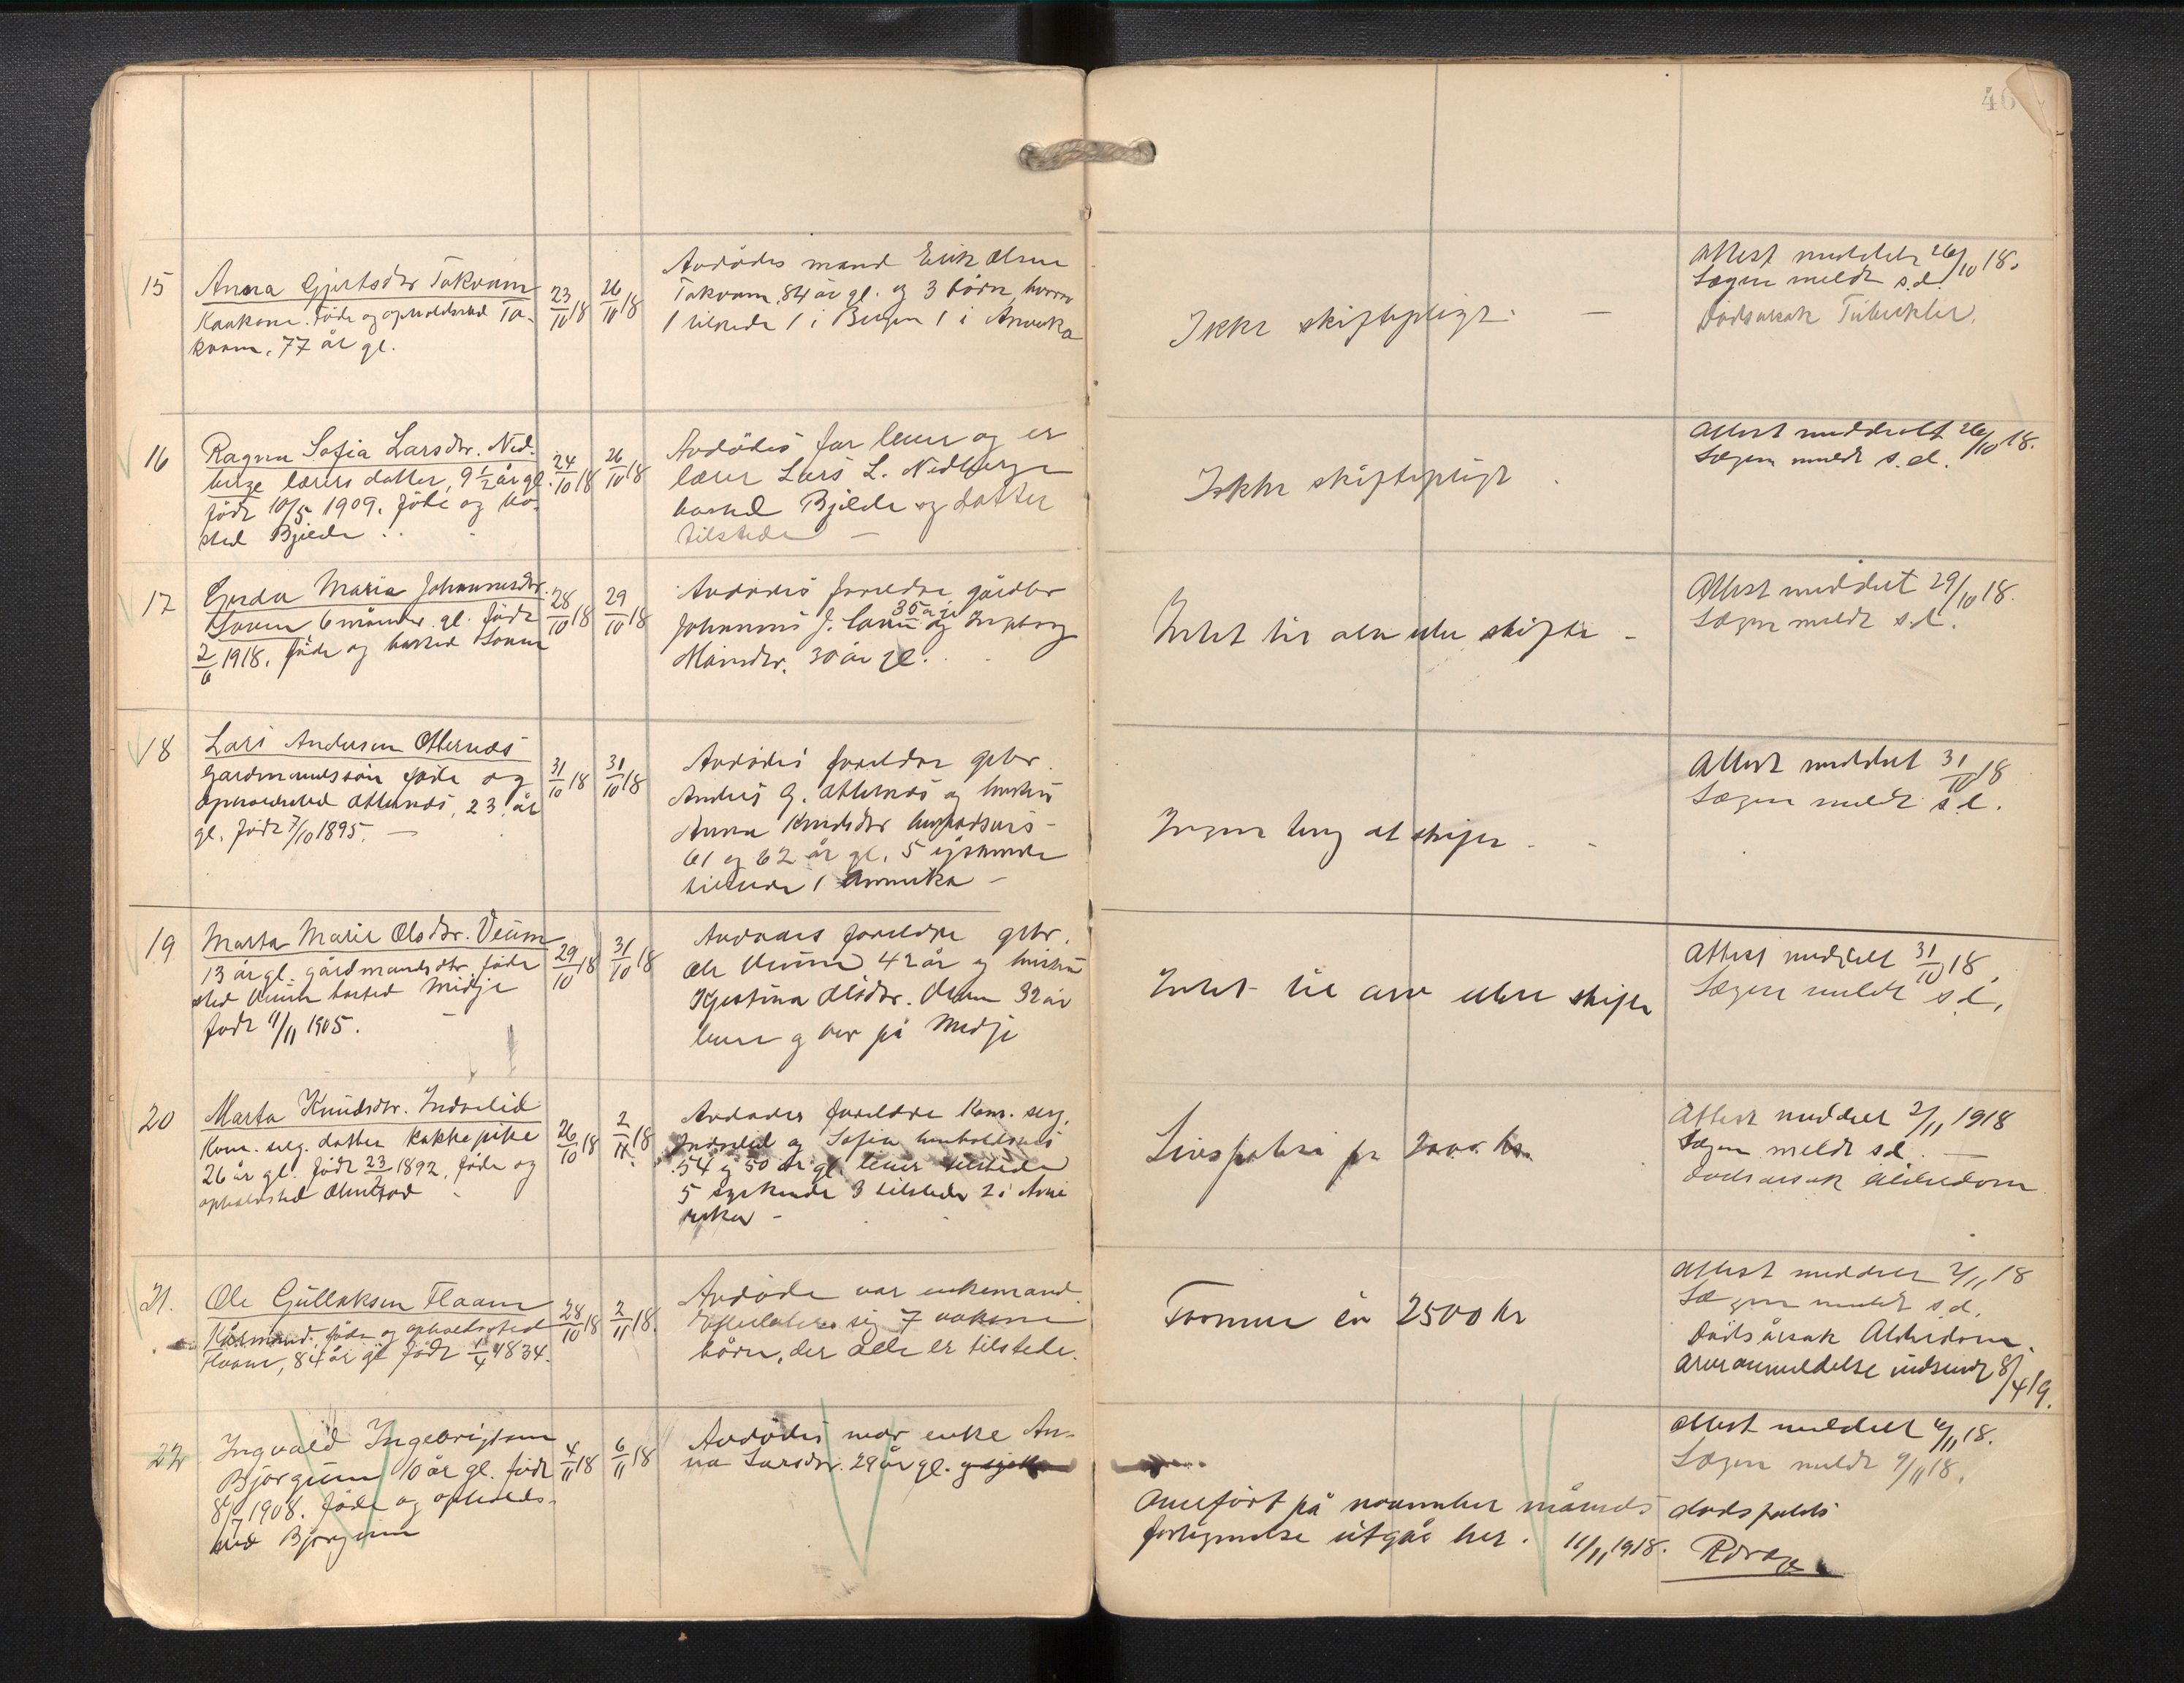 46
15
Anna Gjertsdtr Tokvam
Kaarkone. Føde og opholdssted To-
kvam, 77 år gl.
23/10 18
26/10 18
Avdødes mand Erik Olsen
Tokvam, 84 år gl. og 3 børn, hvorav
1 tilstede 1 i Bergen 1 i Amerika
Ikke skiftepligt. —
Attest meddelt 26/10 18.
Lægen meldt s.d.
Dødsårsak Tuberkler.
16
Ragna Sofia Larsdtr. Ned-
berge lærers datter, 9 1/2 år gl.
født 10/5 1909. Føde og bo-
sted Bjelde . .
24/10 18
26/10 18
Avdødes far lever og er
lærer Lars L. Nedberge
bosted Bjelde og datter
tilstede —
Ikke skiftepligt .
Attest meddelt 26/10 18.
Lægen meldt s.d.
17
Gerda Maria Johannesdtr.
6 måneder gl. født
2/6 1918. Føde og bosted
28/10 18
29/10 18
Avdødes foreldre gårdbr
Johannes J. 35 år gl. og Ingeborg
Monsdtr. 30 år gl. .
Intet til arv eller skifte -
Attest meddelt 29/10 18.
Lægen meldt s.d.
18
Lars Andersen Otternes
Gardmandssøn føde og
opholdssted Otternes, 23 år
gl. født 7/10 1895. —
31/10 18
31/10 18
Avdødes foreldre gbr.
Anders G. Otternes og hustru
Anna Knudsdtr henholdsvis
61 og 62 år gl. 5 søskende
tilstede 1 Amerika -
Ingen ting at skifte . -
Attest meddelt 31/10 18
Lægen meldt s.d.
19
Marta Marie Olsdtr. Veum
13 år gl. gårdmandsdtr. føde
sted Veum bosted Midje
født 11/11 1905. —
29/10 18
31/10 18
Avdødes foreldre gbr.
Ole Veum 42 år og hustru
Kjestina Olsdtr. Veum 32 år
lever og bor på Midje
Intet til arv eller skifte
Attest meddelt 31/10 18
Lægen meldt s.d.
20
Marta Knudsdtr. Indrelid
Kom. serg. datter kokkepike
26 år gl. født 23/2 1892. føde og
opholdssted
26/10 18
2/11 18
Avdødes foreldre Kom. serg.
Indrelid og Sofia henholdsvis
54 og 50 år gl. lever tilstede
5 søskende 3 tilstede 2 i Ame
rika -
Livspolise på 2000 kr.
Attest meddelt 2/11 1918
Lægen meldt s.d. —
dødsårsak
21.
Ole Gullaksen Flaam
Kårmand. føde og opholdssted
Flaam, 84 år gl født 1/4 1834.
28/10 18
2/11 18.
Avdøde var enkemand.
Efterlater sig 7 voksne
børn, der alle er tilstede.
Formue ca 2500 kr
Attest meddelt 2/11 18
Lægen meldt s.d.
Dødsårsak Alderdom.
Arveanmeldelse indsendt 8/4 19.
22
Ingvald Ingebrigtsen
Bjørgum 10 år gl. født
8/7 1908. føde og opholds-
sted Bjørgum
4/11 18
6/11 18
Avdødes mor enke An-
na Larsdtr. 29 år gl.
Attest meddelt 6/11 18.
Lægen meldt 9/11 18.
Anført på november måneds dødsfalds
fortegnelse utgår her. 11/11 1918.